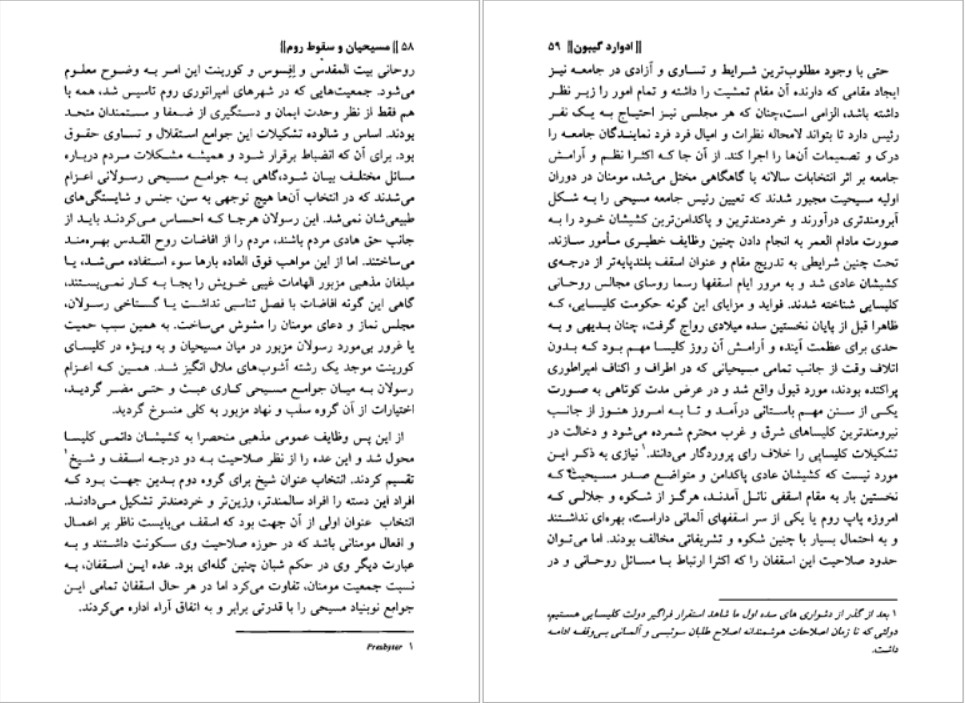 ۵۸ || مسیحیان و سقوط روم ||
روحانی بیت المقدس و اِفِسوس و کورینت این امر به وضوح معلوم
می‌شود. جمعیت‌هایی که در شهرهای امپراتوری روم تاسیس شد، همه با
هم فقط از نظر وحدت ایمان و دستگیری از ضعفا و مستمندان متحد
بودند. اساس و شالوده تشکیلات این جوامع استقلال و تساوی حقوق
بود. برای آن که انضباط برقرار شود و همیشه مشکلات مردم درباره
مسائل مختلف بیان شود،گاهی به جوامع مسیحی رسولانی اعزام
می‌شدند که در انتخاب آن‌ها هیچ توجهی به سن، جنس و شایستگی‌های
طبیعی‌شان نمی‌شد. این رسولان هرجا که احساس می‌کردند باید از
جانب حق هادی مردم باشند، مردم را از افاضات روح القدس بهره‌مند
می‌ساختند. اما از این مواهب فوق العاده بارها سوء استفاده می‌شد، یا
مبلغان مذهبی مزبور الهامات غیبی خویش را بجا به کار نمی‌بستند،
گاهی این گونه افاضات با فصل تناسبی نداشت یا گستاخی رسولان،
مجلس نماز و دعای مومنان را مشوش می‌ساخت. به همین سبب حمیت
یا غرور بی‌مورد رسولان مزبور در میان مسیحیان و به ویژه در کلیسای
کورینت موجد یک رشته آشوب‌های ملال انگیز شد. همین که اعزام
رسولان به میان جوامع مسیحی کاری عبث و حتی مضر گردید،
اختیارات از آن گروه سلب و نهاد مزبور به کلی منسوخ گردید.
از این پس وظایف عمومی مذهبی منحصرا به کشیشان دائمی کلیسا
محول شد و این عده را از نظر صلاحیت به دو درجه اسقف و شیخ۱
تقسیم کردند. انتخاب عنوان شیخ برای گروه دوم بدین جهت بود که
افراد این دسته را افراد سالمندتر، وزین‌تر و خردمندتر تشکیل می‌دادند.
انتخاب عنوان اولی از آن جهت بود که اسقف می‌بایست ناظر بر اعمال
و افعال مومنانی باشد که در حوزه صلاحیت وی سکونت داشتند و به
عبارت دیگر وی در حکم شبان چنین گله‌ای بود. عده این اسقفان، به
نسبت جمعیت مومنان، تفاوت می‌کرد اما در هر حال اسقفان تمامی این
جوامع نوبنیاد مسیحی را با قدرتی برابر و به اتفاق آراء اداره می‌کردند.
۱ Presbyter
|| ادوارد گیبون || ۵۹
حتی با وجود مطلوب‌ترین شرایط و تساوی و آزادی در جامعه نیز
ایجاد مقامی که دارنده آن مقام تمشیت را داشته و تمام امور را زیر نظر
داشته باشد، الزامی است،چنان که هر مجلسی نیز احتیاج به یک نفر
رئیس دارد تا بتواند لامحاله نظرات و امیال فرد فرد نمایندگان جامعه را
درک و تصمیمات آن‌ها را اجرا کند. از آن جا که اکثرا نظم و آرامش
جامعه بر اثر انتخابات سالانه یا گاهگاهی مختل می‌شد، مومنان در دوران
اولیه مسیحیت مجبور شدند که تعیین رئیس جامعه مسیحی را به شکل
آبرومندتری درآورند و خردمندترین و پاکدامن‌ترین کشیشان خود را به
صورت مادام العمر به انجام دادن چنین وظایف خطیری مأمور سازند.
تحت چنین شرایطی به تدریج مقام و عنوان اسقف بلندپایه‌تر از درجه‌ی
کشیشان عادی شد و به مرور ایام اسقفها رسما روسای مجالس روحانی
کلیسایی شناخته شدند. فواید و مزایای این گونه حکومت کلیسایی، که
ظاهرا قبل از پایان نخستین سده میلادی رواج گرفت، چنان بدیهی و به
حدی برای عظمت آینده و آرامش آن روز کلیسا مهم بود که بدون
اتلاف وقت از جانب تمامی مسیحیانی که در اطراف و اکناف امپراطوری
پراکنده بودند، مورد قبول واقع شد و در عرض مدت کوتاهی به صورت
یکی از سنن مهم باستانی درآمد و تا به امروز هنوز از جانب
نیرومندترین کلیساهای شرق و غرب محترم شمرده می‌شود و دخالت در
تشکیلات کلیسایی را خلاف رای پروردگار می‌دانند.۱ نیازی به ذکر این
مورد نیست که کشیشان عادی پاکدامن و متواضع صدر مسیحیت که
نخستین بار به مقام اسقفی نائل آمدند، هرگز از شکوه و جلالی که
امروزه پاپ روم یا یکی از سر اسقفهای آلمانی داراست، بهره‌ای نداشتند
و به احتمال بسیار با چنین شکوه و تشریفاتی مخالف بودند. اما می‌توان
حدود صلاحیت این اسقفان را که اکثرا ارتباط با مسائل روحانی و در
۱ بعد از گذر از دشواری های سده اول ما شاهد استقرار فراگیر دولت کلیسایی هستیم،
دولتی که تا زمان اصلاحات هوشمندانه اصلاح طلبان سوئیسی و آلمانی بی‌وقفه ادامه
داشت.